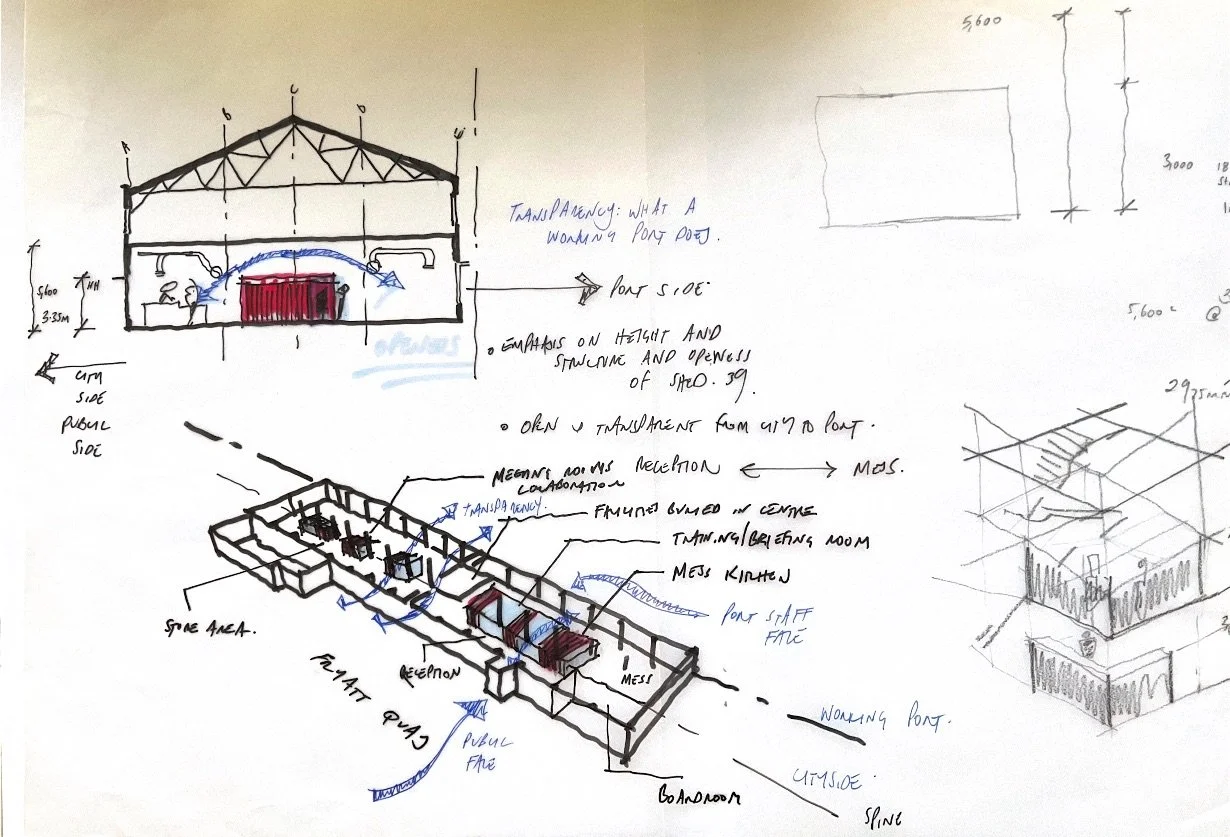 A
B
C
D
E
5,600
3.35M
HH
TRANSPARENCY: WHAT A
WORKING PORT DOES.
PORT SIDE
OPENESS
CITY
SIDE
PUBLIC
SIDE
• EMPHASIS ON HEIGHT AND
STRUCTURE AND OPENESS
OF SHED. 39.
• OPEN & TRANSPARENT FROM CITY TO PORT.
MEETING ROOMS
COLLABORATION
RECEPTION
MESS.
TRANSPARENCY.
FACILITIES BURIED IN CENTRE
TRAINING/BRIEFING ROOM
MESS KITCHEN
PORT STAFF
FACE
STORE AREA.
RECEPTION
MESS
FRYATT QUAY
PUBLIC
FACE
BOARDROOM
WORKING PORT.
CITYSIDE
SPINE
5,600
3,000
18
5,600
@